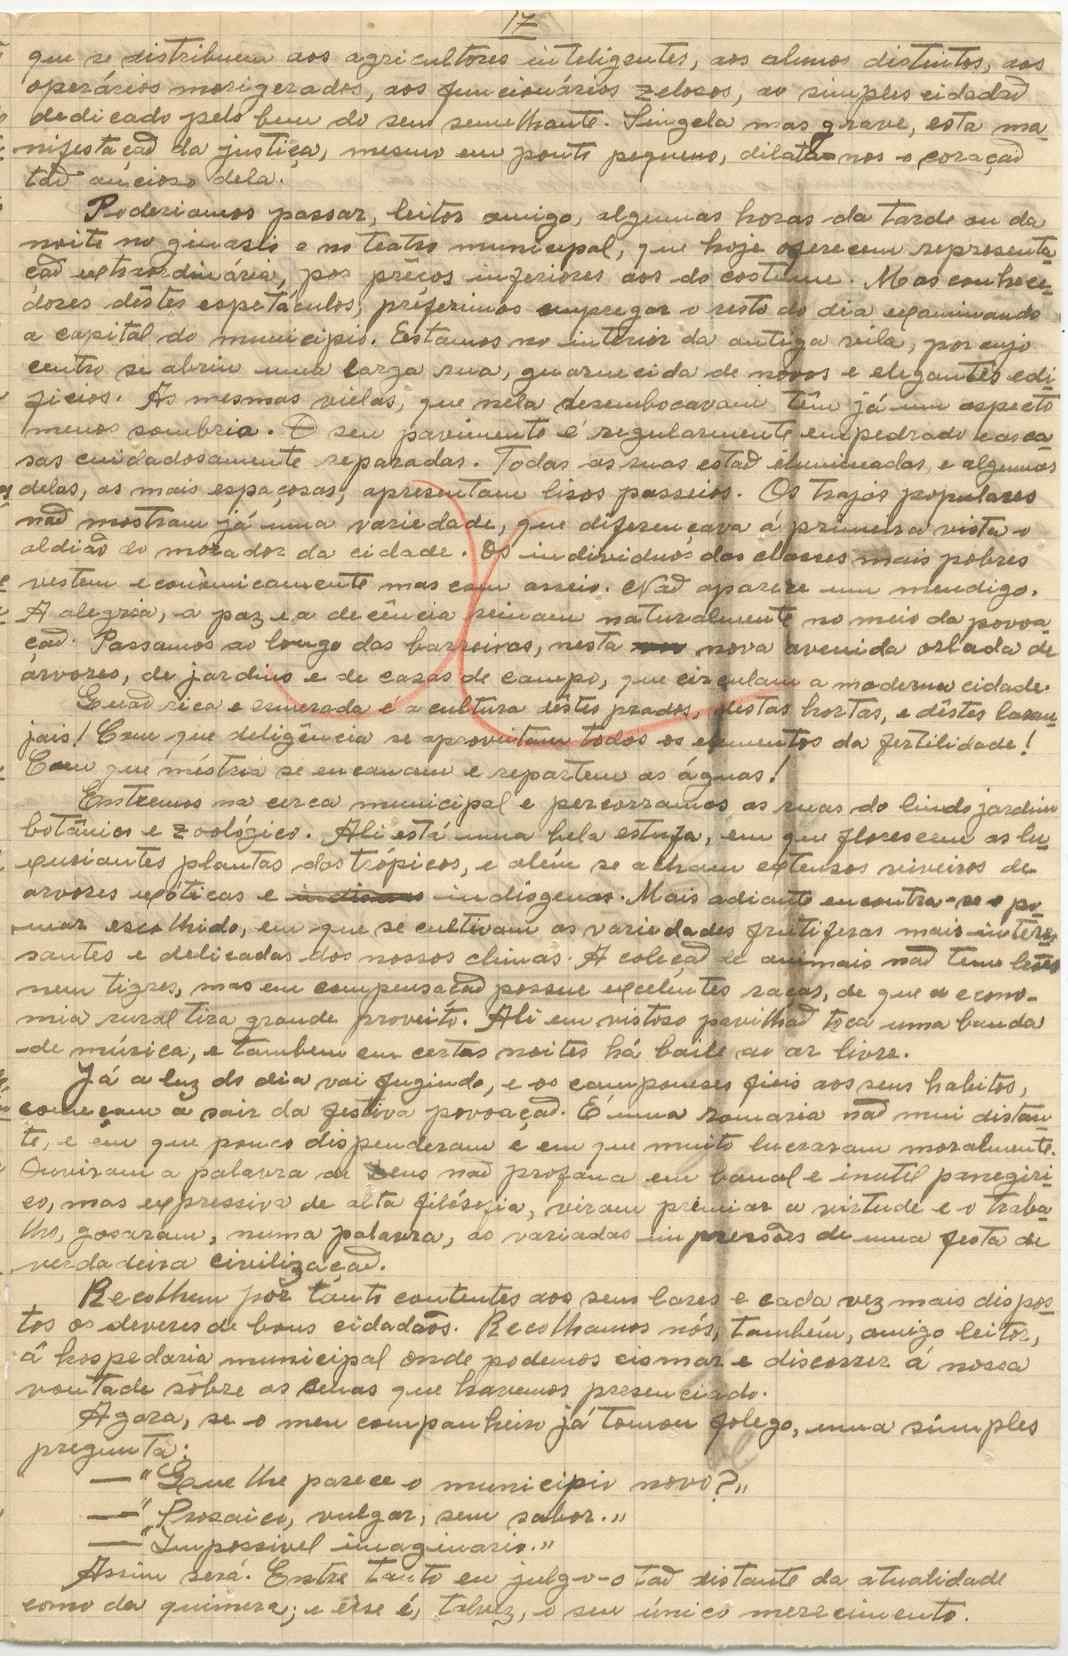 17
que se distribuem aos agricultores inteligentes, aos alunos distintos, aos
operários morigerados, aos funcionários zelosos, ao simples cidadão
dedicado pelo bem do seu semelhante. Singela mas grave, esta ma-
nifestação da justiça, mesmo em ponto pequeno, dilata-nos o coração
tão ancioso dela.
Poderiamos passar, leitor amigo, algumas horas da tarde ou da
noite no ginasio e no teatro municipal, que hoje oferecem representa-
ção extraordinária, por prêços inferiores aos do costume. Mas conhece-
dores dêstes espetáculos, preferimos empregar o resto do dia examinando
a capital do municipio. Estamos no interior da antiga vila, por cujo
centro se abriu uma larga rua, guarnecida de novos e elegantes edi-
ficios. As mesmas vielas, que nela desembocavam têm já um aspecto
menos sombrio. O seu pavimento é regularmente empedrado e as ca-
sas cuidadosamente reparadas. Todas as ruas estão iluminadas, e algumas
delas, as mais espaçosas, apresentam lisos passeios. Os trajos populares
não mostram já uma variedade, que diferençava á primeira vista o
aldião do morador da cidade. Os individuos das classes mais pobres
vestem econòmicamente mas com asseio. Não aparece um mendigo.
A alegria, a paz e a decência reinam naturalmente no meio da povoa-
ção. Passamos ao longo das barreiras, nesta nova avenida orlada de
árvores, de jardins e de casas de campo, que circulam a moderna cidade.
Quão rica e esmerada é a cultura dêstes prados, destas hortas, e dêstes laran-
jais! Com que deligência se aproveitam todos os elementos da fertilidade!
Com que méstria se encanam e repartem as águas!
Entremos na cerca municipal e percorramos as ruas do lindo jardim
botânico e zoológico. Ali está uma bela estufa, em que florescem as lu-
xuriantes plantas dos trópicos, e além se acham extensos viveiros de
arvores exóticas e indiogenas. Mais adiante encontra-se o po-
mar escolhido, em que se cultivam as variedades frutiferas mais interes-
santes e delicadas dos nossos climas. A coleção de animais não tem leões
nem tigres, mas em compensação possue excelentes raças, de que a econo-
mia rural tira grande proveito. Ali em vistoso pavilhão toca uma banda
de música, e tambem em certas noites há baile ao ar livre.
Já a luz do dia vai fugindo, e os camponeses fieis aos seus habitos,
começam a sair da festiva povoação. É uma romaria não mui distan-
te, e em que pouco dispenderam e em que muito lucraram moralmente.
Ouviram a palavra de Deus não profana em banal e inutil panegiri-
co, mas expressiva de alta filósofia, viram prémiar a virtude e o traba-
lho, gosaram, numa palavra, as variadas impressões de uma festa de
verdadeira civilização.
Recolhem por tanto contentes aos seus lares e cada vez mais dispos-
tos os deveres de bons cidadãos. Recolhamos nós, também, amigo leitor,
á hospedaria municipal onde podemos cismar e discorrer á nossa
vontade sôbre as senas que havemos presenciado.
Agora, se o meu companheiro já tomou folego, uma simples
pregunta:
—"Que lhe parece o municipio novo?"
—"Prosaico, vulgar, sem sabor."
—"Impossivel imaginario."
Assim será. Entre tanto eu julgo-o tão distante da atualidade
como da quimera; e êsse é, talvez, o seu único merecimento.